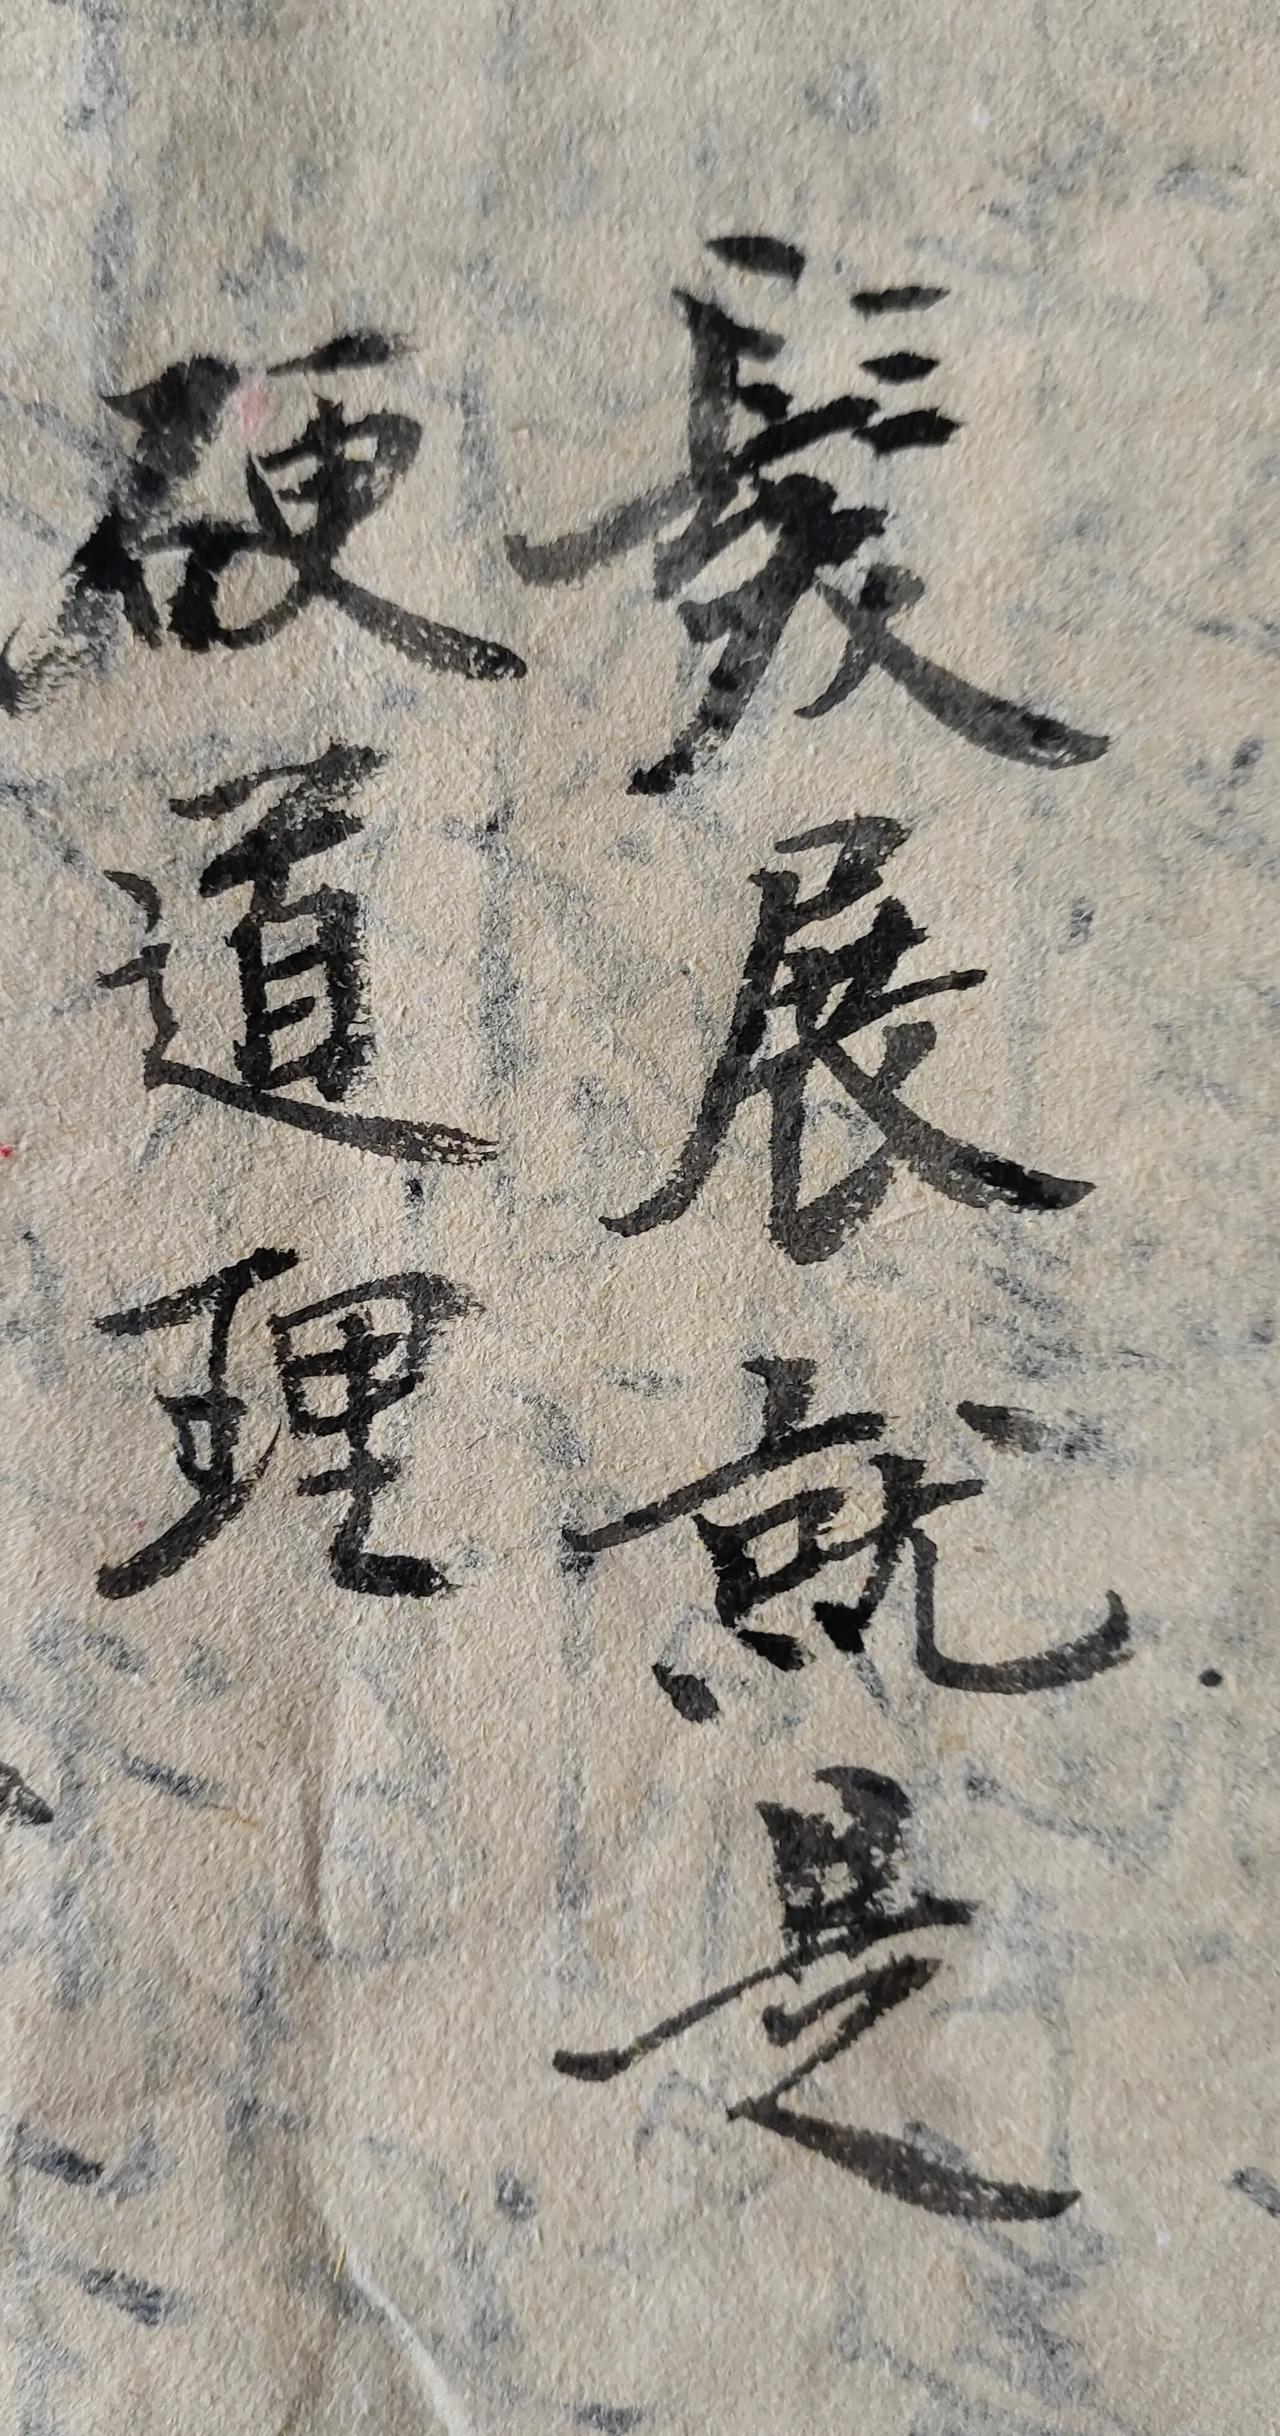 髮展就是
硬道理